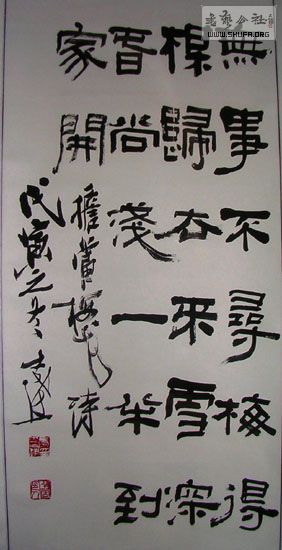 書藝公社
WWW.SHUFA.ORG
無事不尋梅得
楳歸去來雪深
春尚淺一半到
家開
梅花詩
戊寅之冬